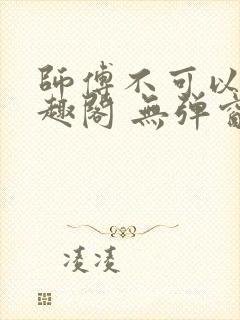 師傅不可以
趣閣 無弹窗
凌凌